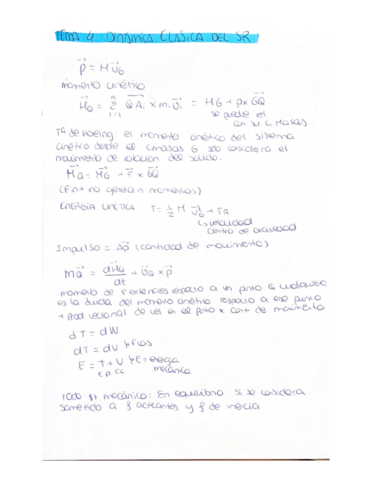 TEMA 4. DINÁMICA CLÁSICA DEL SR
p⃗ = M v⃗G
Momento cinético
H⃗Q = Σ(i=1, n) QA⃗i × mi v⃗i = H⃗G + p⃗ × GQ⃗
se puede el
El momento cinético del sistema
cinético desde el cmasas G solo considera el
movimiento de rotación del sólido.
(Fint no generan momentos)
ENERGÍA CINÉTICA T = 1/2 M v⃗G² + TR
velocidad
centro de gravedad
Impulso = Δp⃗ (cantidad de movimiento)
M⃗Q = dH⃗Q/dt + v⃗Q × p⃗
momento de F exteriores respecto a un punto Q cualquiera
es la del momento cinético respecto a ese punto
+ prod vectorial de vel en el punto × cant de movimiento
dT = dW
dT = dV
E = T + V E = energía
mecánica
Todo st mecánico: En equilibrio si se considera
sometido a f actuantes y f de inercia